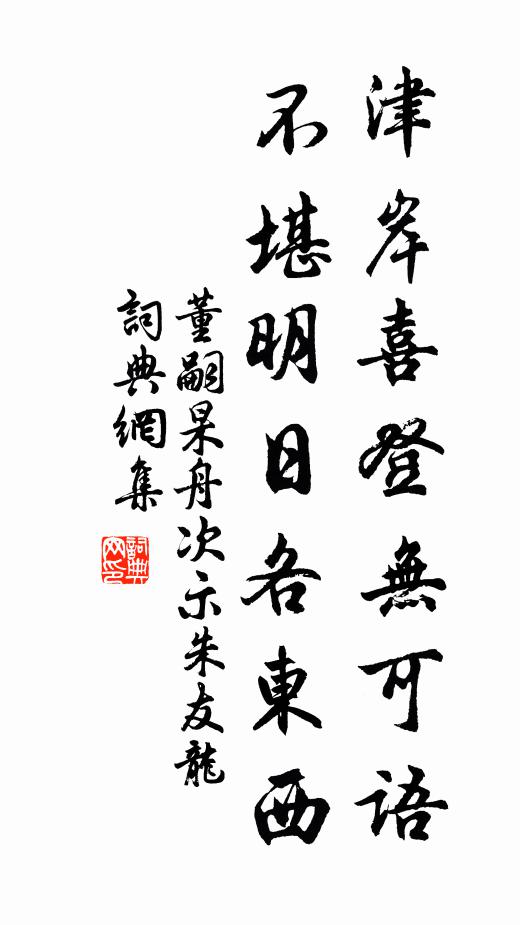 津岸喜登無可語
不堪明日各東西
董嗣杲舟次示朱友龍
詞典網集
詞典網印